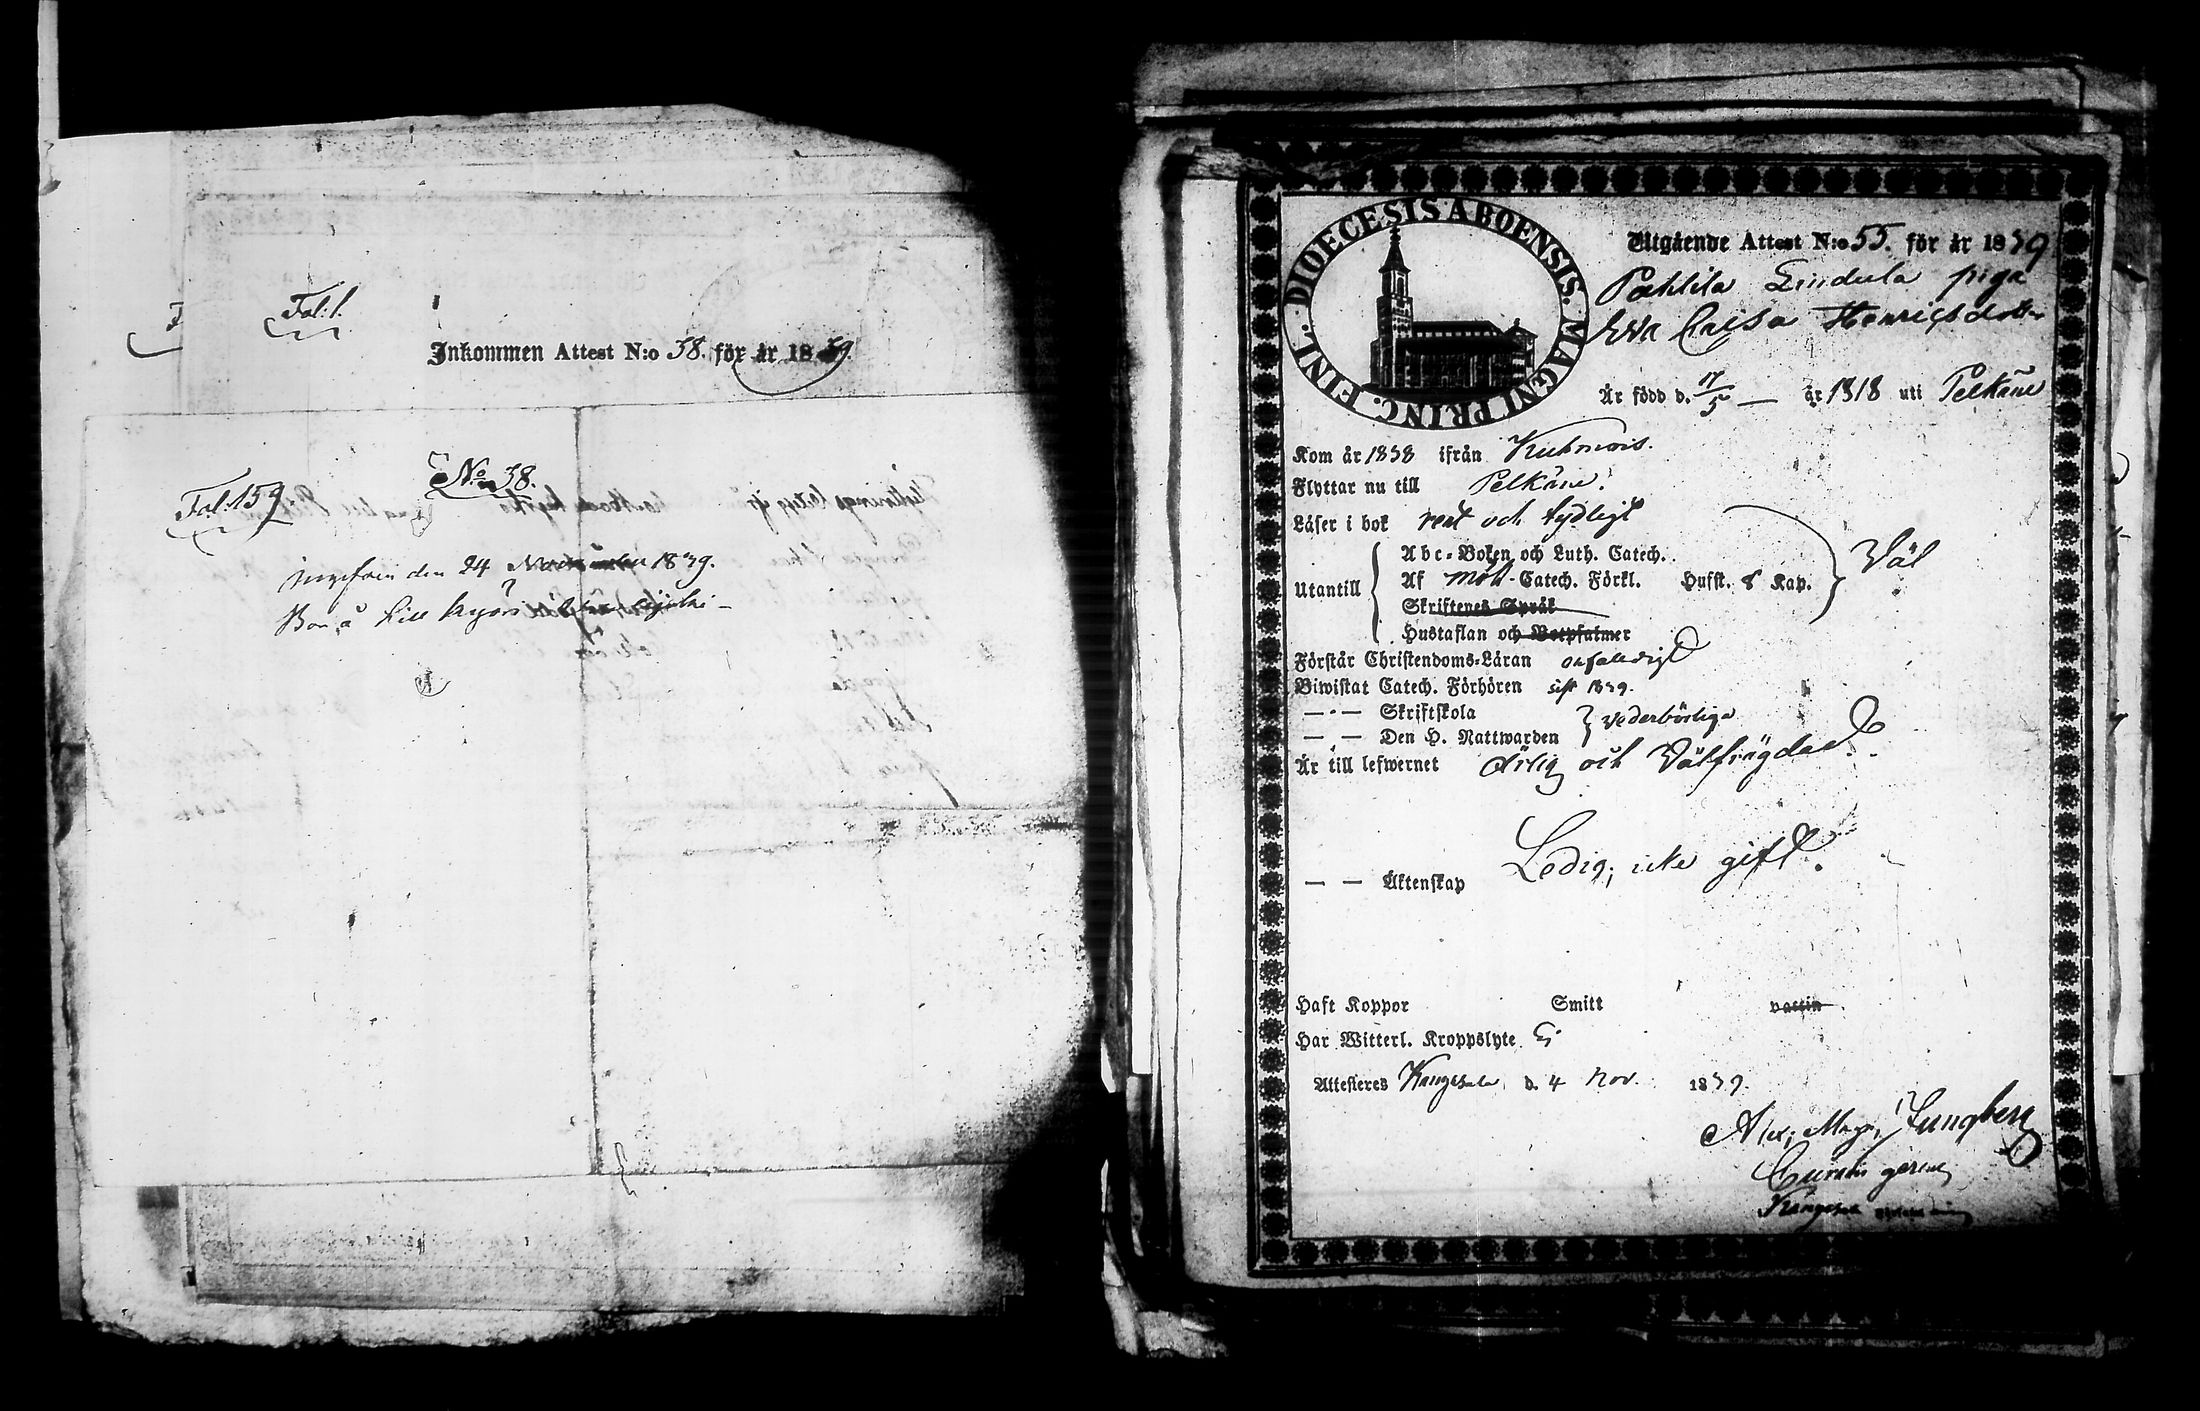 Fol. 1.
Inkommen Attest N:o 38. för år 1839.
No 38.
Fol. 159
den 24 November 1839.
Utgående Attest N:o 55. för år 1839
DIOECESIS ABOENSIS. MAGNI PRINC. FINL.
Pahkla Lindula piga
Eva Caisa Henricsdotter
Är född d. 17/5 — år 1818 uti Pelkäne
Kom år 1838 ifrån Kuhmois.
Flyttar nu till Pelkäne.
Läser i bok rent och tydligt
Utantill
Abc-Boken och Luth. Catech.
Af Catech. Förkl. Hufst. 8 Kap.
Skriftenes Språk
Hustaflan och Botpsalmer
Väl
Förstår Christendoms-Läran
Biwistat Catech. Förhören sist 1839.
— „ — Skriftskola
— „ — Den H. Nattwarden
vederbörligen
Är till lefwernet ärlig och välfrägdad.
— — Äktenskap Ledig, icke gift.
Haft Koppor Smitt vaccin
Har Witterl. Kroppslyte Ej
Attesteres Kangasala d. 4 Nov. 1839.
Alex. Magn. Ljungberg